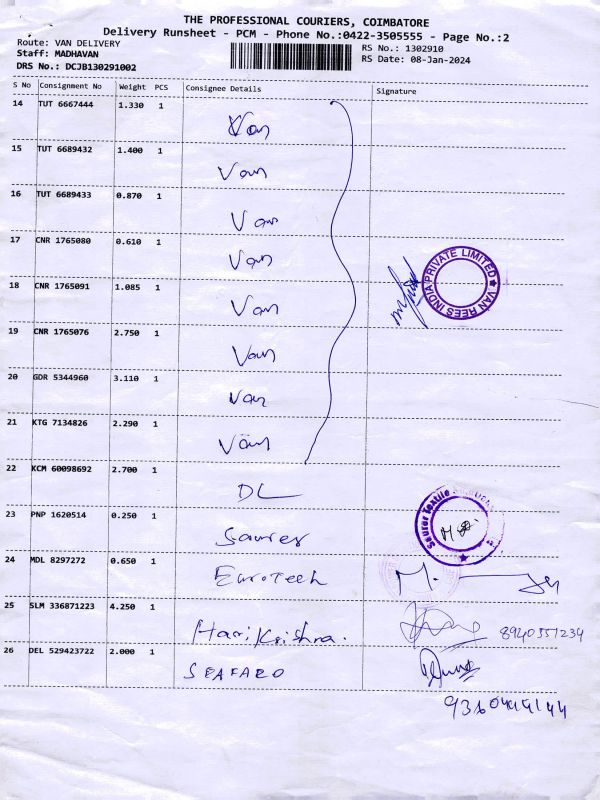 THE PROFESSIONAL COURIERS, COIMBATORE
Delivery Runsheet - PCM - Phone No.:0422-3505555 - Page No.:2
Route: VAN DELIVERY
RS No.: 1302910
Staff: MADHAVAN
RS Date: 08-Jan-2024
DRS No.: DCJB130291002
S No Consignment No Weight PCS Consignee Details Signature
14 TUT 6667444 1.330 1 Van
15 TUT 6689432 1.400 1 Van
16 TUT 6689433 0.870 1 Van
17 CNR 1765080 0.610 1 Van
VAN REES INDIA PRIVATE LIMITED
18 CNR 1765091 1.085 1 Van
19 CNR 1765076 2.750 1 Van
20 GDR 5344960 3.110 1 Van
21 KTG 7134826 2.290 1 Van
22 KCM 60098692 2.700 1 DL
23 PNP 1620514 0.250 1 Saurer
Saurer Textile
24 MDL 8297272 0.650 1 Eurotech
25 SLM 336871223 4.250 1 Hari Krishna. 8940551234
26 DEL 529423722 2.000 1 SEAFARO